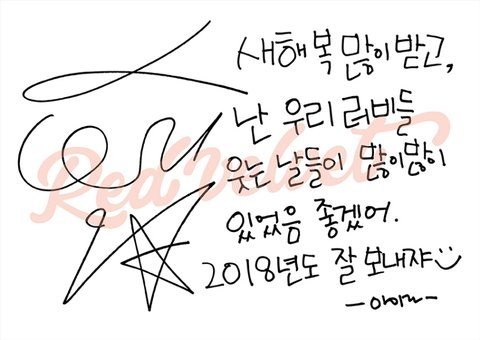 새해 복 많이 받고,
난 우리 러비들
웃는 날들이 많이많이
있었음 좋겠어.
2018년도 잘 보내쟈
-아이린-
Red Velvet